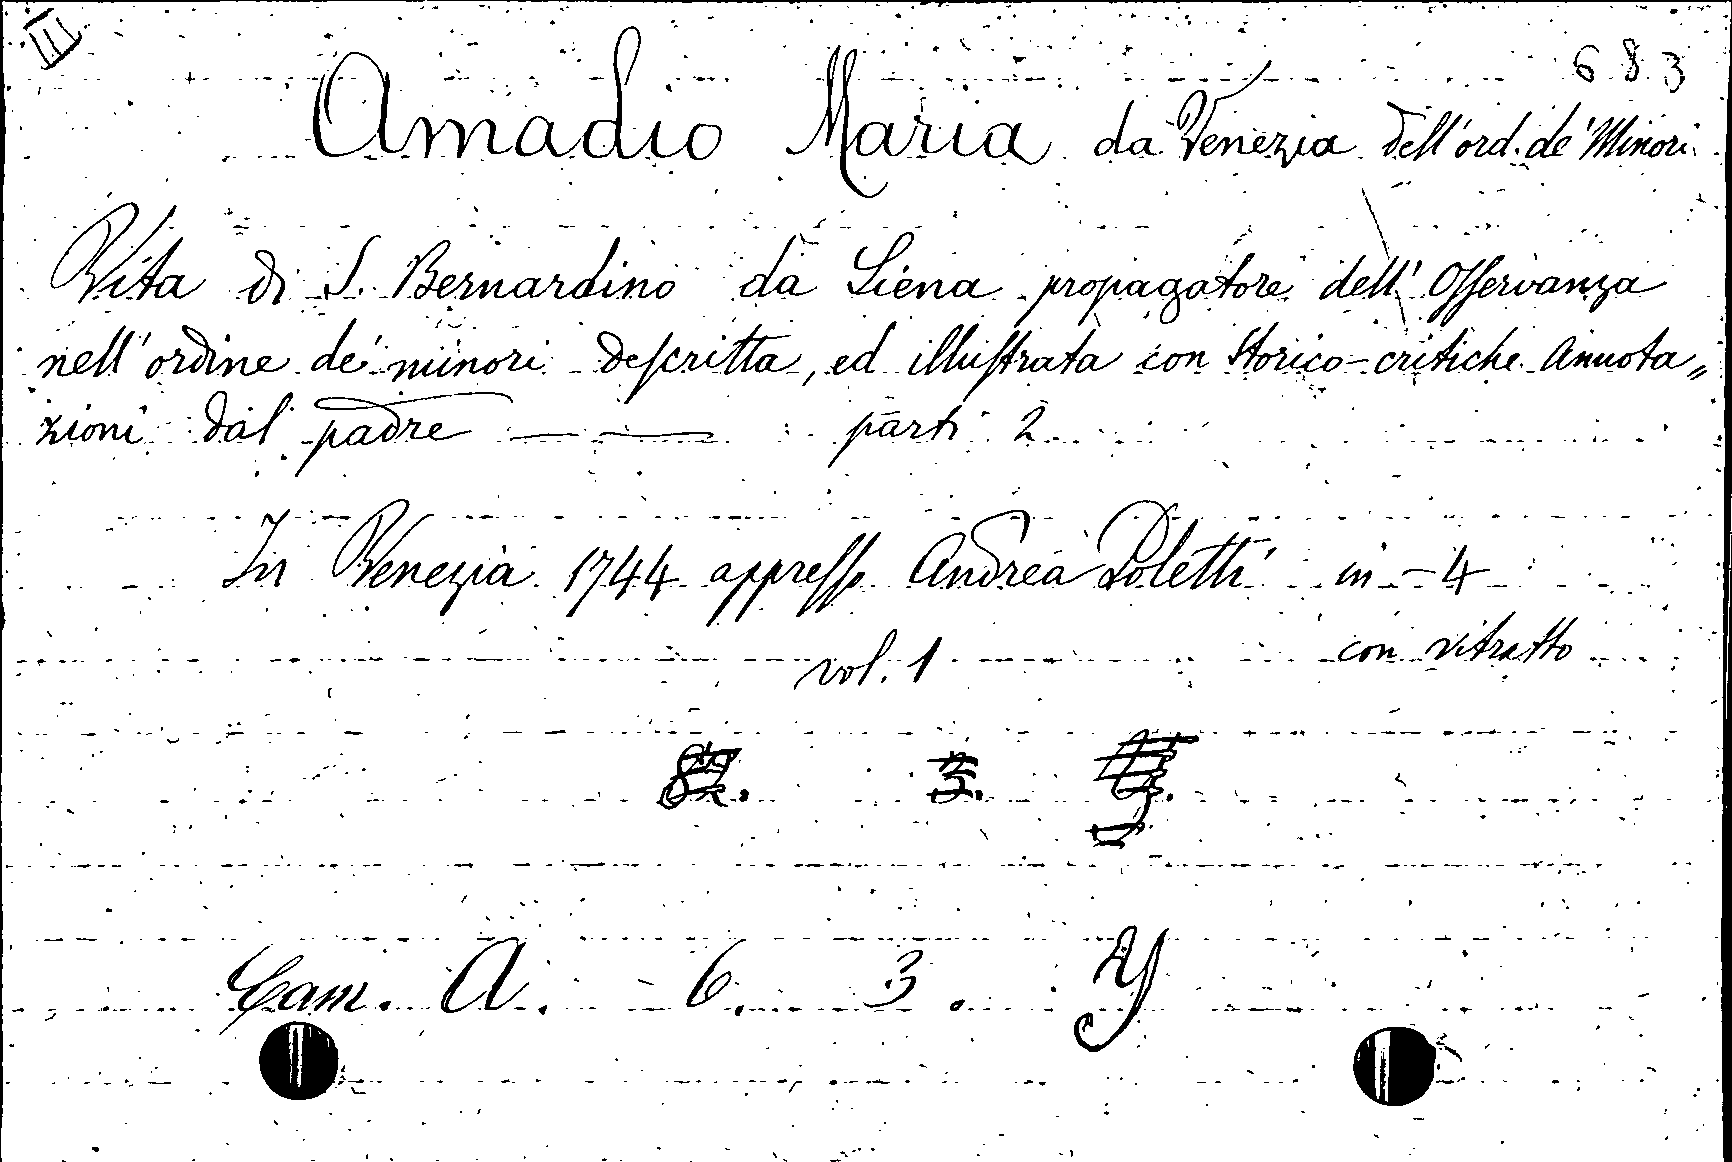 III
683
Amadio Maria da Venezia dell'ord. de' Minori
Vita di S. Bernardino da Siena propagatore dell' Osservanza
nell'ordine de' minori descritta, ed illustrata con Storico-critiche Annota„
zioni dal padre — — parti 2
In Venezia 1744 appresso Andrea Poletti in-4
vol. 1 con ritratto
Cam. A. 6. 3. Y